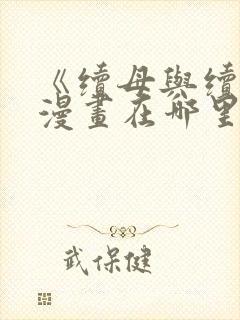 《續母與續
漫畫在哪里
武保健